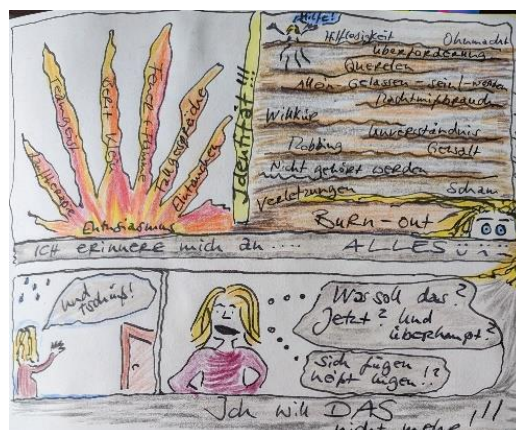 Teamgeist
Wert
Fallgespräche
Eintauchen
Entusiasmus
Identität!!!
Hilfe!
Hilflosigkeit Ohnmacht
Überforderung
Querelen
Allen Gelassen-sein/-werden
Machtmißbrauch
Willkür
Unverständnis
Mobbing Gewalt
Nicht gehört werden
Verletzungen Scham
BURN-out
ICH erinnere mich an.... ALLES
Und Tschüß!
Was soll das?
Jetzt? Und
überhaupt?
Sich fügen
heißt lügen!!?
Ich will DAS
nicht mehr!!!